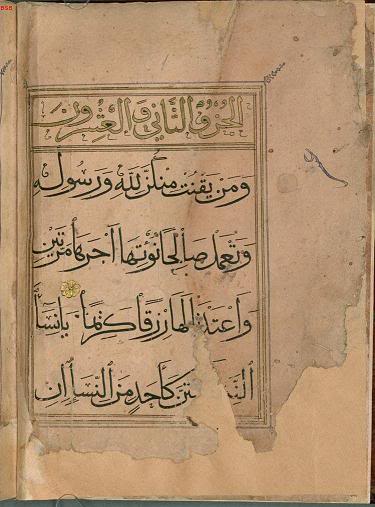 BSB
الجزؤ الثاني والعشرون
ومن يقنت منكن لله ورسوله
وتعمل صالحا نؤتها اجرها مرتين
واعتدنا لها رزقا كريما يانسا
النبي لستن كاحد من النسا ان